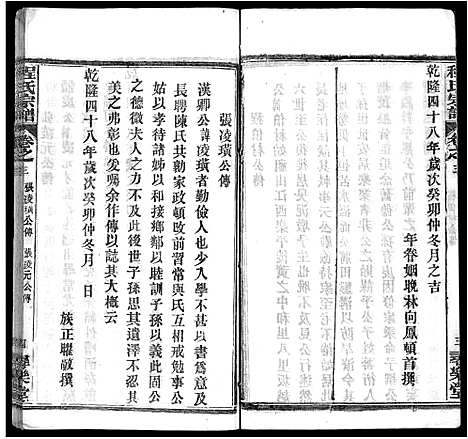 程氏宗譜
卷之三
三
尋樂堂
乾隆四十八年歲次癸卯仲冬月之吉
年眷姻晚林向鳳頓首撰
張凌璜公傳
漢卿公諱凌璜者勤儉人也少入學不以書爲意及
長聘陳氏共勷家政頓改前習常與氏互相戒勉事公
姑以孝待諸姊以和接鄉鄰以睦訓子孫以義此固公
之德徽夫人之德不及此後世子孫思其遺澤不能
美之弗彰也爰囑余作傳以誌其大概云
乾隆四十八年歲次癸卯仲冬月 日
族正聯敬撰
程氏宗譜
卷之三
張凌璜公傳 張凌元公傳
四
尋樂堂